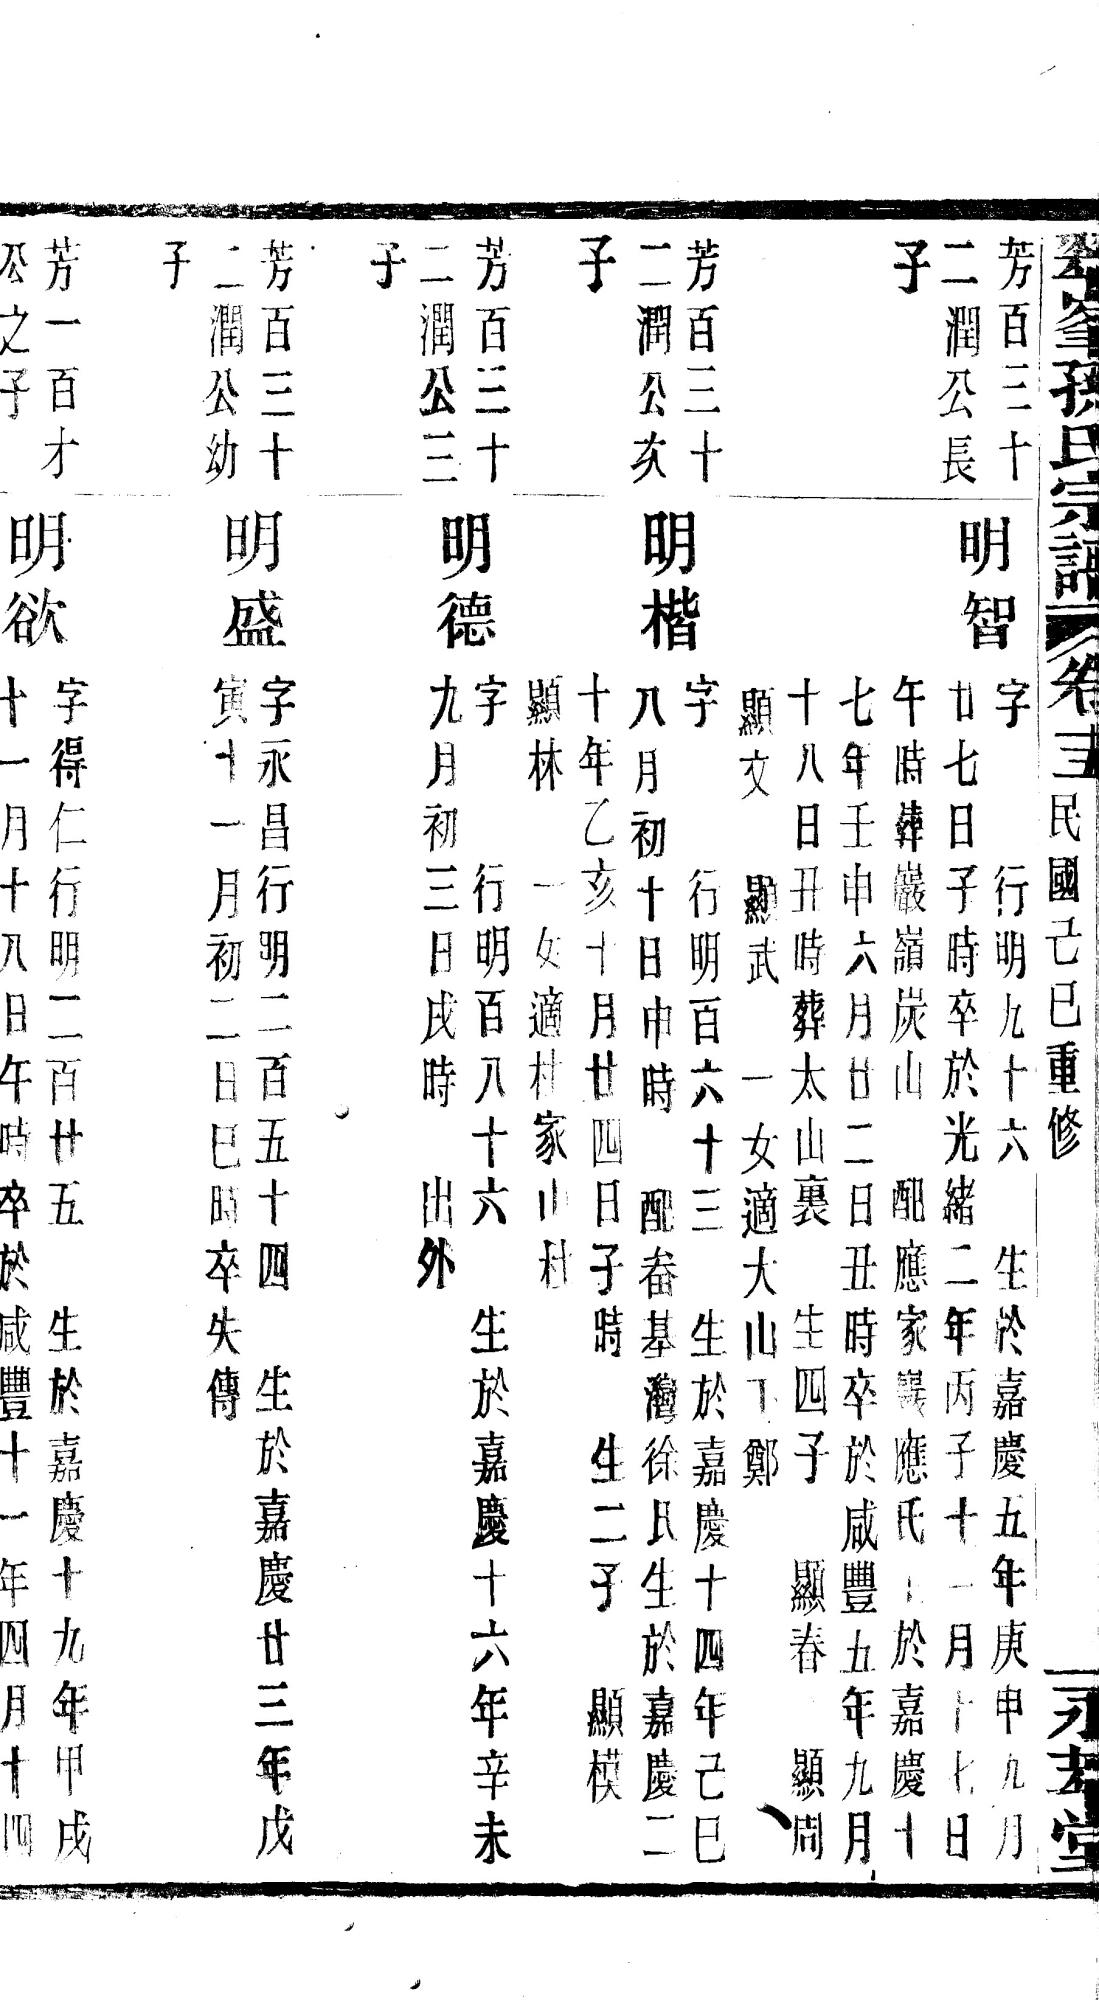 峯孫氏宗譜 卷 民國己巳重修 永孝堂
芳百三十
二潤公長
子
明智
字 行明九十六 生於嘉慶五年庚申九月
廿七日子時卒於光緒二年丙子十一月十七日
午時葬巖嶺炭山 配應家 應氏 於嘉慶十
七年壬申六月廿二日丑時卒於咸豐五年九月
十八日丑時葬太山裏 生四子 顯春 顯周
顯文 顯武 一女適大山下鄭
芳百三十
二潤公次
子
明楷
字 行明百六十三 生於嘉慶十四年己巳
八月初十日申時 配畚基灣徐氏生於嘉慶二
十年乙亥十月廿四日子時 生二子 顯模
顯林 一女適杜家山杜
芳百三十
二潤公三
子
明德
字 行明百八十六 生於嘉慶十六年辛未
九月初三日戌時 出外
芳百三十
二潤公幼
子
明盛
字永昌行明二百五十四 生於嘉慶廿三年戊
寅十一月初二日巳時卒失傳
芳一百才
公之子
明欲
字得仁行明二百廿五 生於嘉慶十九年甲戌
十一月十八日午時卒於咸豐十一年四月十四